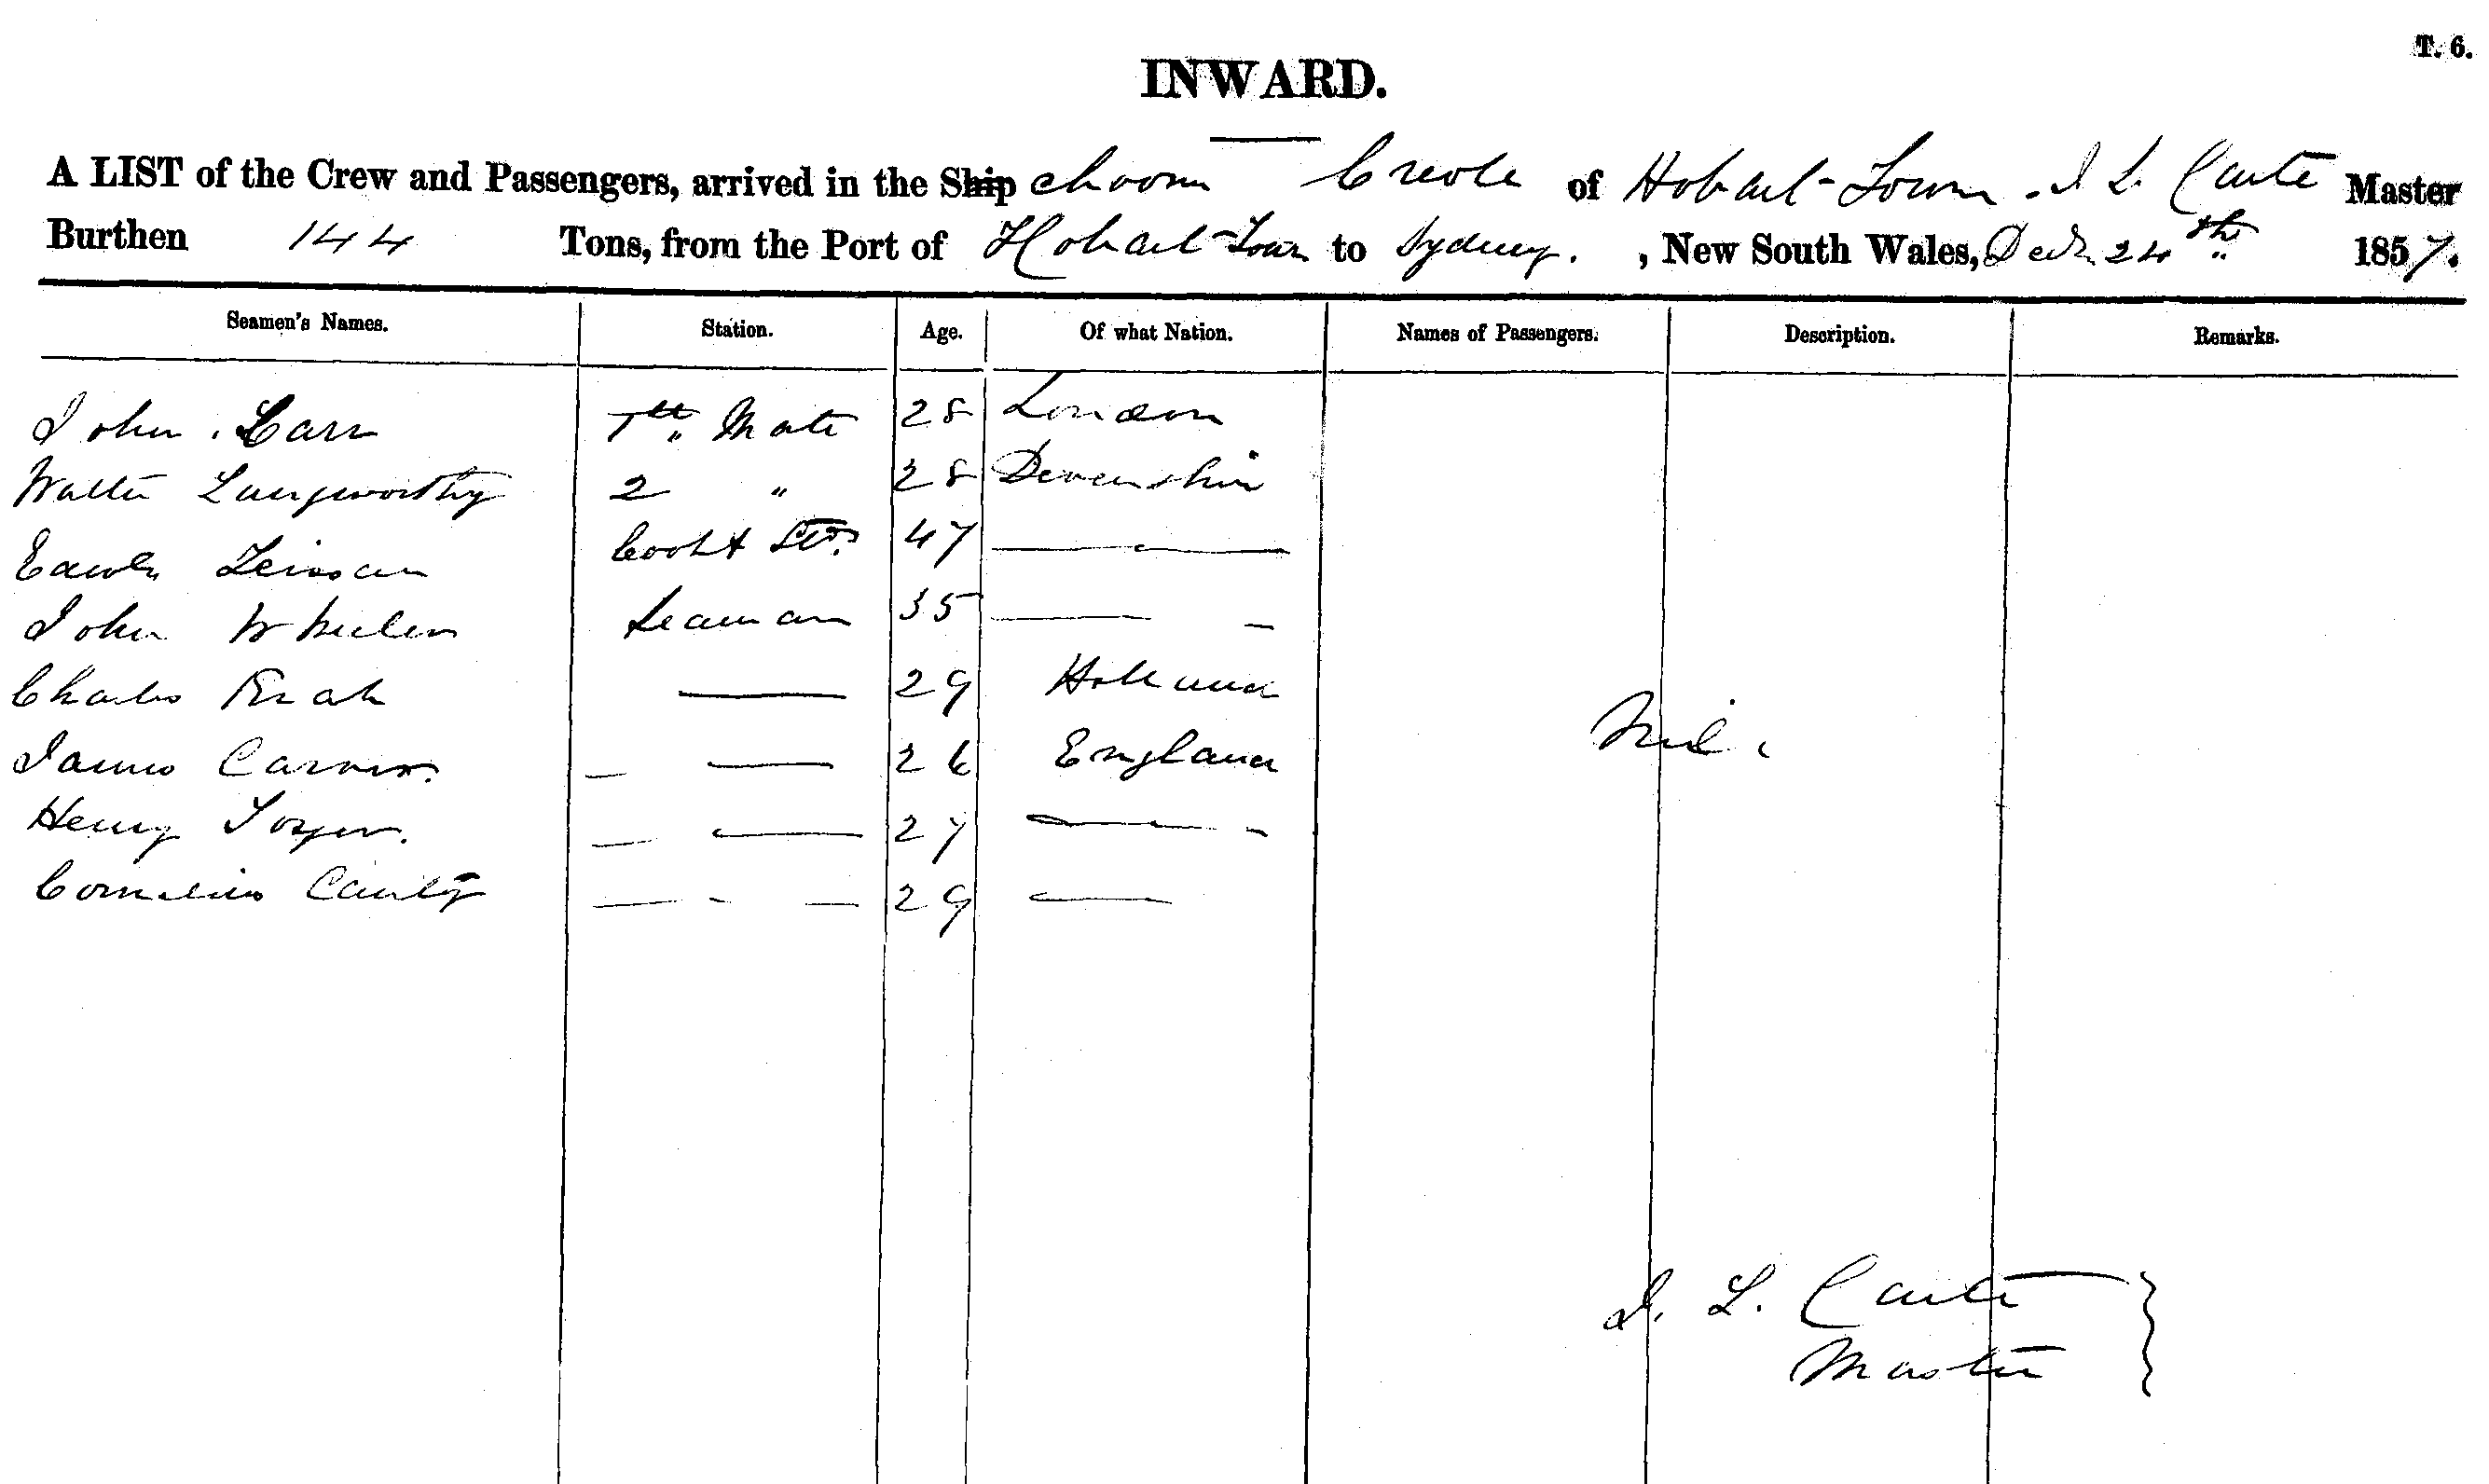 T. 6.
INWARD.
A LIST of the Crew and Passengers, arrived in the Ship choonr Creole of Hobart-Town. J L. Carte Master
Burthen 144 Tons, from the Port of Hobart-Town to Sydney. , New South Wales, Decr. 24th 1857.
Seamen's Names. Station. Age. Of what Nation. Names of Passengers. Description. Remarks.
John Carr 1st Mate 28 London
Walter Langworthy 2 " 28 Devonshire
Cook & Std. 47
John Wheeler Seaman 35
Charles 29 Holland
James 26 England
Nil.
Henry 27
Cornelius 29
J. L. Carte
Master